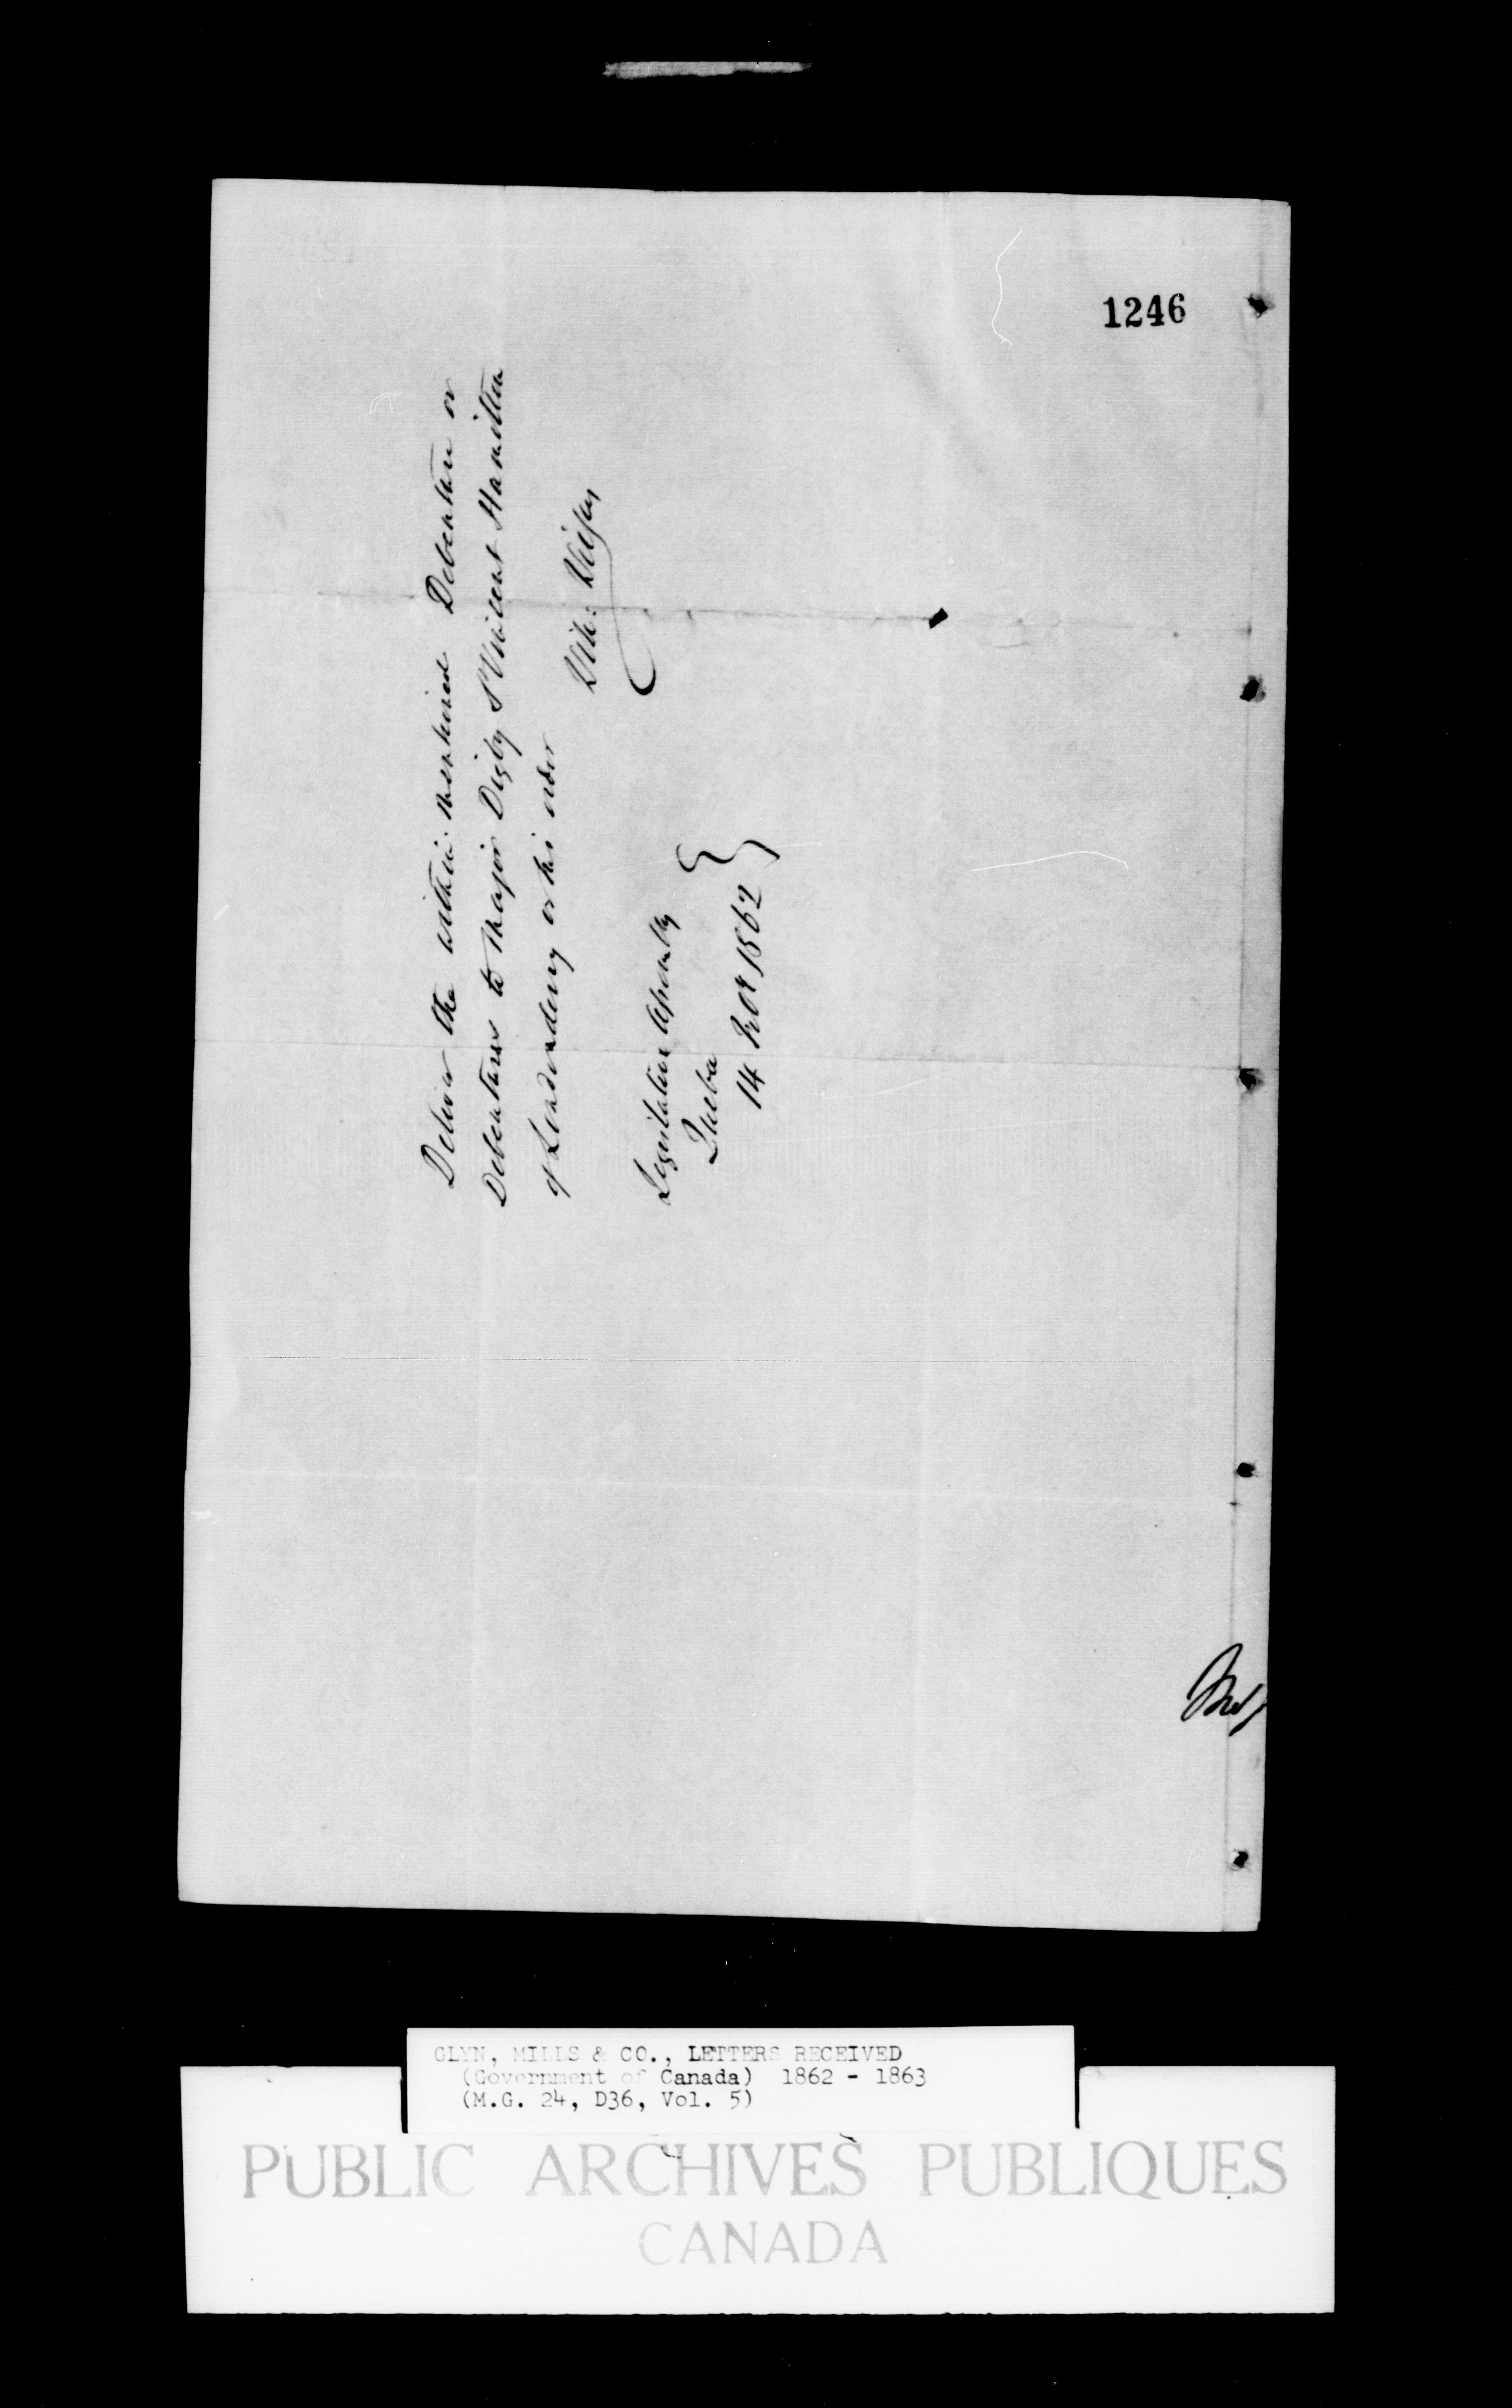 1246
Deliver the within mentioned Debenture or
Debentures to Major Digby St Vincent Hamilton
of Londonderry or his order
Wm: Wilson
Legislative Assembly
Quebec
14 Nov 1862
GLYN, MILLS & CO., LETTERS RECEIVED
(Government of Canada) 1862 - 1863
(M.G. 24, D36, Vol. 5)
PUBLIC ARCHIVES PUBLIQUES
CANADA